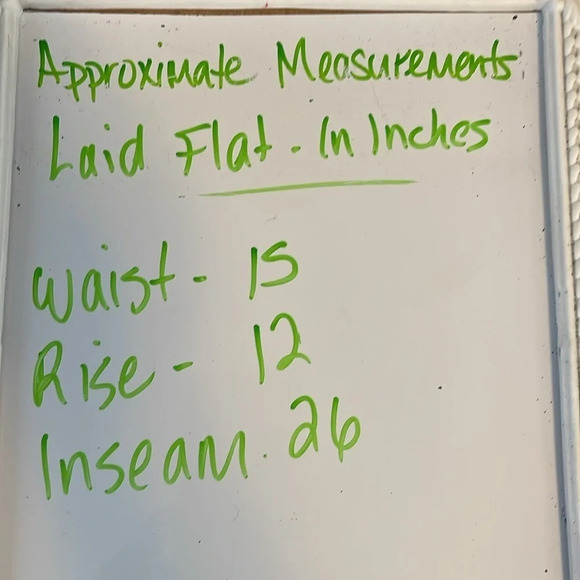 Approximate Measurements
Laid Flat - In Inches
Waist - 15
Rise - 12
Inseam. 26